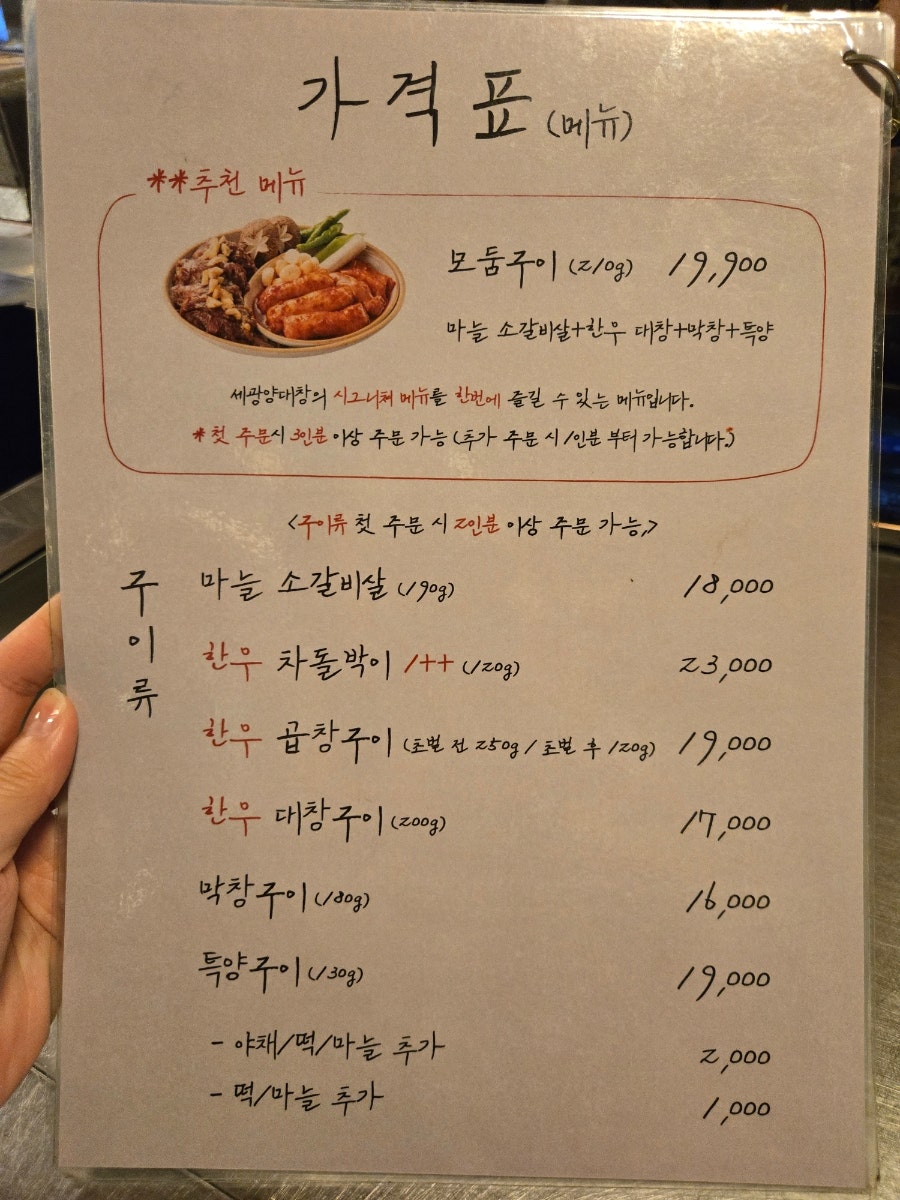 가격표 (메뉴)
**추천 메뉴
모둠구이 (210g) 19,900
마늘 소갈비살+한우 대창+막창+특양
세광양대창의 시그니처 메뉴를 한번에 즐길 수 있는 메뉴입니다.
*첫 주문시 3인분 이상 주문 가능 (추가 주문 시 1인분 부터 가능합니다.)
<구이류 첫 주문 시 2인분 이상 주문 가능,>
구이류
마늘 소갈비살 (190g) 18,000
한우 차돌박이 1++ (120g) 23,000
한우 곱창구이 (초벌 전 250g / 초벌 후 120g) 19,000
한우 대창구이 (200g) 17,000
막창구이 (180g) 16,000
특양구이 (130g) 19,000
- 야채/떡/마늘 추가 2,000
- 떡/마늘 추가 1,000